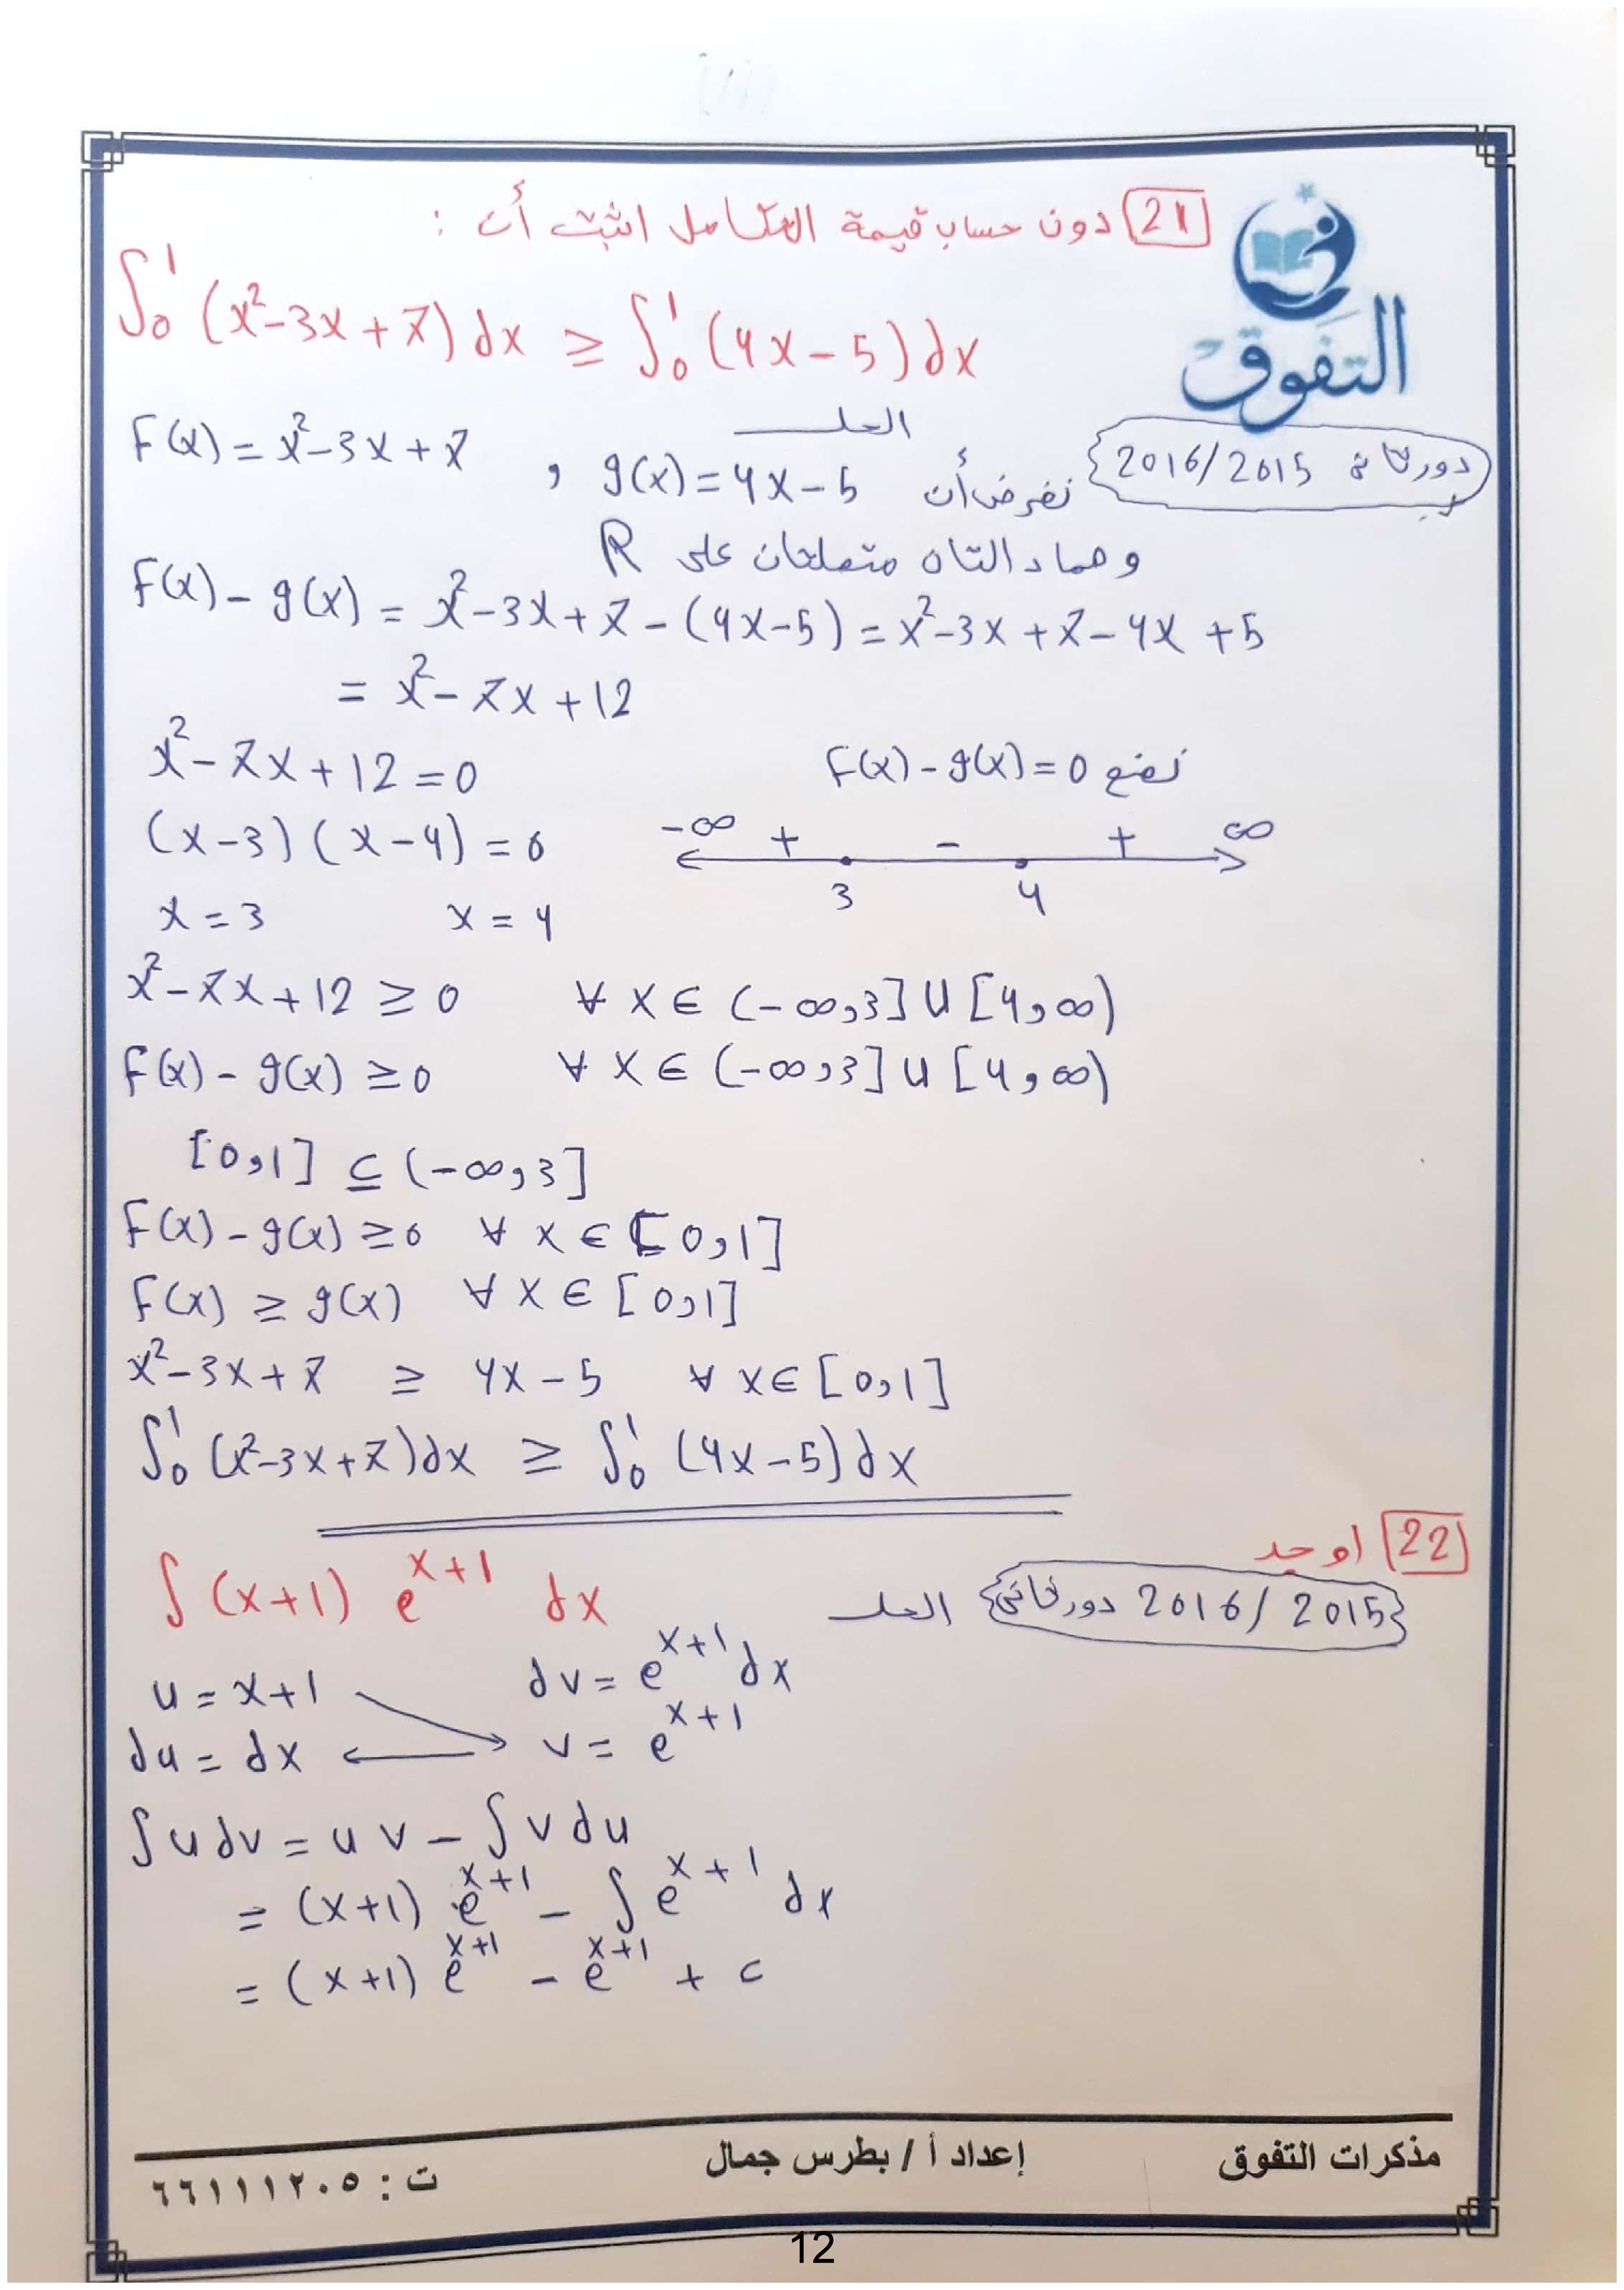 21 دون حساب قيمة التكامل اثبت أن :
∫₀¹ (x²-3x+7) dx ≥ ∫₀¹ (4x-5) dx
التفوق
الحل
دور ثاني 2016/2015
نفرض أن F(x) = x²-3x+7 , g(x) = 4x-5
وهما دالتان متصلتان على R
F(x) - g(x) = x²-3x+7-(4x-5) = x²-3x+7-4x+5
= x²-7x+12
نضع F(x)-g(x)=0
x²-7x+12=0
(x-3)(x-4)=0
-∞ + 3 - 4 + ∞
x=3 x=4
x²-7x+12 ≥ 0 ∀ x ∈ (-∞,3] ∪ [4,∞)
F(x)-g(x) ≥ 0 ∀ x ∈ (-∞,3] ∪ [4,∞)
[0,1] ⊆ (-∞,3]
F(x)-g(x) ≥ 0 ∀ x ∈ [0,1]
F(x) ≥ g(x) ∀ x ∈ [0,1]
x²-3x+7 ≥ 4x-5 ∀ x ∈ [0,1]
∫₀¹ (x²-3x+7)dx ≥ ∫₀¹ (4x-5)dx
22 اوجد
∫ (x+1) e^(x+1) dx
2016/2015 دور ثاني
الحل
u = x+1 dv = e^(x+1) dx
du = dx v = e^(x+1)
∫u dv = u v - ∫v du
= (x+1) e^(x+1) - ∫ e^(x+1) dx
= (x+1) e^(x+1) - e^(x+1) + c
مذكرات التفوق إعداد أ / بطرس جمال ت : ٦٦١١١٢٠٥
12